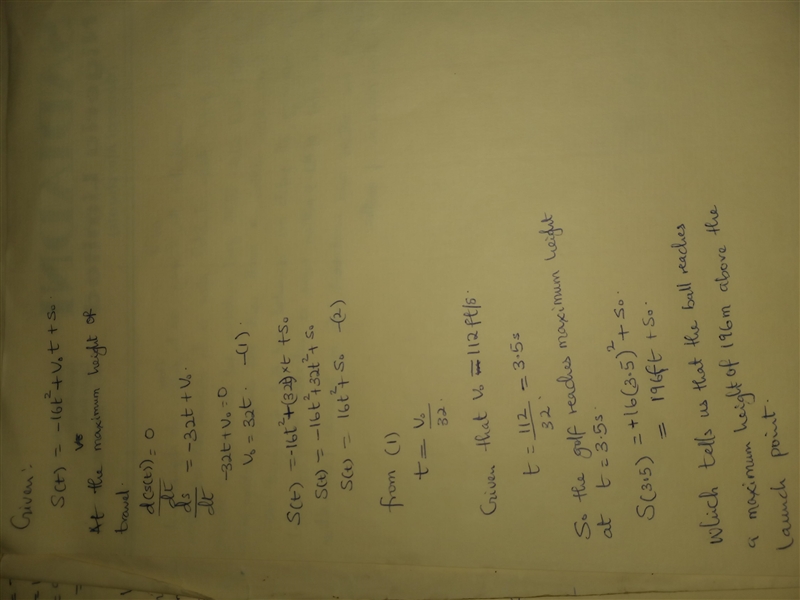 Given:
S(t) = -16t² + V₀t + S₀
At the maximum height of
travel.
d(s(t))/dt = 0
ds/dt = -32t + V₀.
-32t + V₀ = 0
V₀ = 32t. -(1).
S(t) = -16t² + (32t) × t + S₀
S(t) = -16t² + 32t² + S₀
S(t) = 16t² + S₀ -(2)
from (1)
t = V₀/32.
Given that V₀ = 112 ft/s.
t = 112/32 = 3.5s
So the golf reaches maximum height
at t = 3.5s.
S(3.5) = +16(3.5)² + S₀.
= 196ft + S₀.
Which tells us that the ball reaches
a maximum height of 196m above the
launch point.